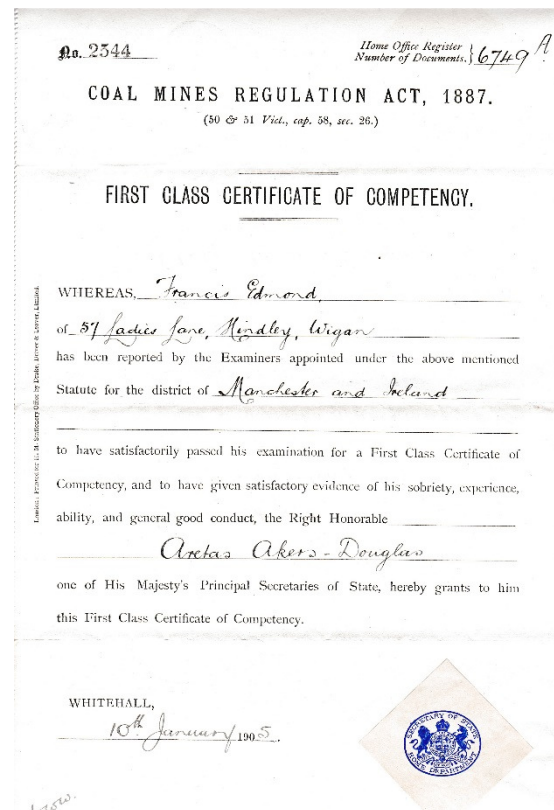 No. 2344
Home Office Register
Number of Documents. } 6749 A
COAL MINES REGULATION ACT, 1887.
(50 & 51 Vict., cap. 58, sec. 26.)
FIRST CLASS CERTIFICATE OF COMPETENCY.
WHEREAS, Francis Edmond,
of 57 Ladies Lane, Hindley, Wigan
has been reported by the Examiners appointed under the above mentioned
Statute for the district of Manchester and Ireland
to have satisfactorily passed his examination for a First Class Certificate of
Competency, and to have given satisfactory evidence of his sobriety, experience,
ability, and general good conduct, the Right Honorable
Aretas Akers-Douglas
one of His Majesty's Principal Secretaries of State, hereby grants to him
this First Class Certificate of Competency.
WHITEHALL,
10th January 1905.
SECRETARY OF STATE
HOME DEPARTMENT